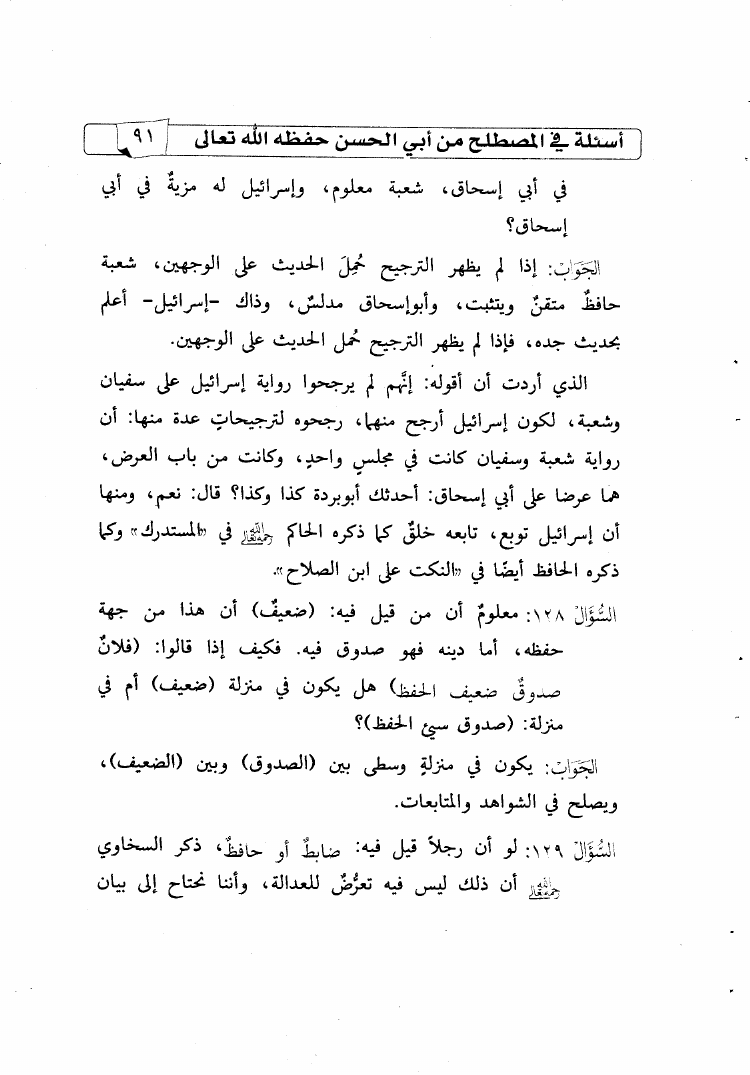 أسئلة في المصطلح من أبي الحسن حفظه الله تعالى ٩١
في أبي إسحاق، شعبة معلوم، وإسرائيل له مزيةٌ في أبي
إسحاق؟
الجَوَابْ: إذا لم يظهر الترجيح حُمِلَ الحديث على الوجهين، شعبة
حافظٌ متقنٌ ويتثبت، وأبوإسحاق مدلسٌ، وذاك -إسرائيل- أعلم
بحديث جده، فإذا لم يظهر الترجيح حُمل الحديث على الوجهين.
الذي أردت أن أقوله: إنَّهم لم يرجحوا رواية إسرائيل على سفيان
وشعبة، لكون إسرائيل أرجح منهما، رجحوه لترجيحاتٍ عدة منها: أن
رواية شعبة وسفيان كانت في مجلسٍ واحدٍ، وكانت من باب العرض،
هما عرضا على أبي إسحاق: أحدثك أبوبردة كذا وكذا؟ قال: نعم، ومنها
أن إسرائيل توبع، تابعه خلقٌ كما ذكره الحاكم رحمه الله في «المستدرك» وكما
ذكره الحافظ أيضًا في «النكت على ابن الصلاح».
السُّؤَالْ ١٢٨: معلومٌ أن من قيل فيه: (ضعيفٌ) أن هذا من جهة
حفظه، أما دينه فهو صدوق فيه. فكيف إذا قالوا: (فلانٌ
صدوقٌ ضعيف الحفظ) هل يكون في منزلة (ضعيف) أم في
منزلة: (صدوق سيئ الحفظ)؟
الجَوَابْ: يكون في منزلةٍ وسطى بين (الصدوق) وبين (الضعيف)،
ويصلح في الشواهد والمتابعات.
السُّؤَالْ ١٢٩: لو أن رجلاً قيل فيه: ضابطٌ أو حافظٌ، ذكر السخاوي
رحمه الله أن ذلك ليس فيه تعرُّضٌ للعدالة، وأننا نحتاج إلى بيان